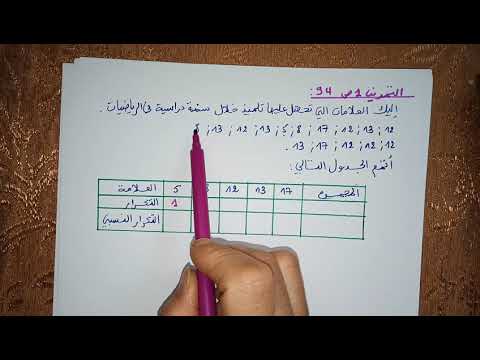 التمرين 1 ص 94:
إليك العلامات التي تحصل عليها تلميذ خلال سنة دراسية في الرياضيات.
12; 13; 12; 17; 8; 5; 13; 12; 13;
12; 12; 12; 17; 13.
أتمم الجدول التالي:
العلامة 5 12 13 17 المجموع
التكرار 1
التكرار النسبي